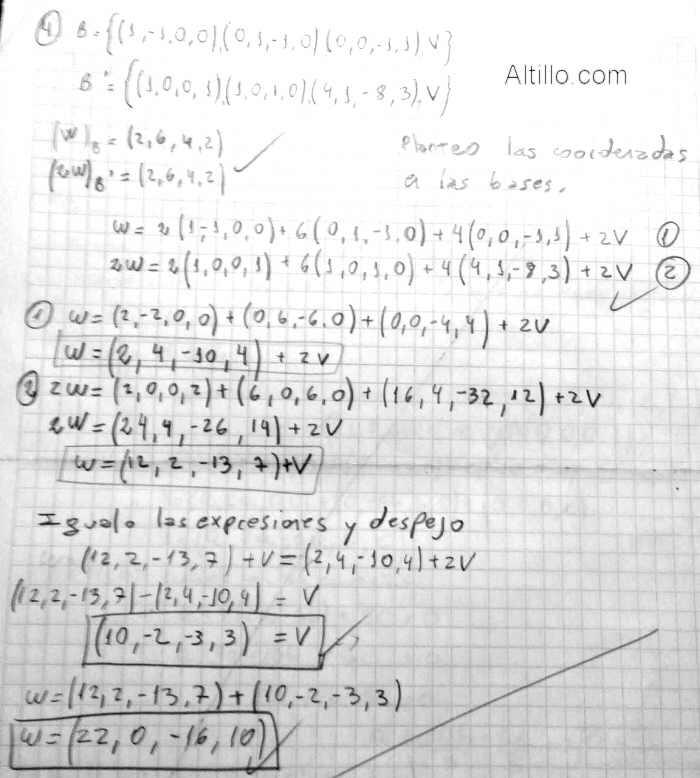 4 B = {(1,-1,0,0),(0,1,-1,0)(0,0,-1,1),V}
Altillo.com
B' = {(1,0,0,1)(1,0,1,0),(4,1,-8,3),V}
[W]B = (2,6,4,2)
Planteo las coordenadas
[2W]B' = (2,6,4,2)
a las bases.
W = 2(1-1,0,0) + 6(0,1,-1,0) + 4(0,0,-1,1) + 2V 1
2W = 2(1,0,0,1) + 6(1,0,1,0) + 4(4,1,-8,3) + 2V 2
1 W = (2,-2,0,0) + (0,6,-6,0) + (0,0,-4,4) + 2V
W = (2,4,-10,4) + 2V
2 2W = (2,0,0,2) + (6,0,6,0) + (16,4,-32,12) + 2V
2W = (24,4,-26,14) + 2V
W = (12,2,-13,7) + V
Igualo las expresiones y despejo
(12,2,-13,7) + V = (2,4,-10,4) + 2V
(12,2,-13,7) - (2,4,-10,4) = V
(10,-2,-3,3) = V
W = (12,2,-13,7) + (10,-2,-3,3)
W = (22,0,-16,10)